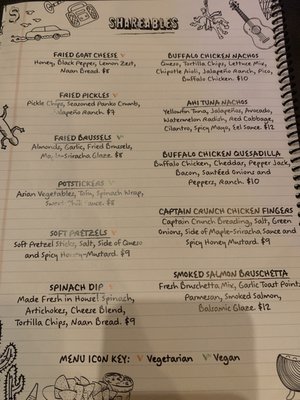 SHAREABLES
FRIED GOAT CHEESE
Honey, Black Pepper, Lemon Zest,
Naan Bread. $8
FRIED PICKLES
Pickle Chips, Seasoned Panko Crumb,
Jalapeño Ranch. $7
FRIED BRUSSELS
Almonds, Garlic, Fried Brussels,
Maple-Sriracha Glaze. $8
POTSTICKERS
Asian Vegetables, Tofu, Spinach Wrap,
Sauce. $8
SOFT PRETZELS
Soft Pretzel Sticks, Salt, Side of Queso
and Spicy Honey-Mustard. $9
SPINACH DIP
Made Fresh in House! Spinach,
Artichokes, Cheese Blend,
Tortilla Chips, Naan Bread. $9
BUFFALO CHICKEN NACHOS
Queso, Tortilla Chips, Lettuce Mix,
Chipotle Aioli, Jalapeño Ranch, Pico,
Buffalo Chicken. $10
AHI TUNA NACHOS
Yellowfin Tuna, Jalapeños, Avocado,
Watermelon Radish, Red Cabbage,
Cilantro, Spicy Mayo, Eel Sauce. $12
BUFFALO CHICKEN QUESADILLA
Buffalo Chicken, Cheddar, Pepper Jack,
Bacon, Sautéed Onions and
Peppers, Ranch. $10
CAPTAIN CRUNCH CHICKEN FINGERS
Captain Crunch Breading, Salt, Green
Onions, Side of Maple-Sriracha Sauce and
Spicy Honey Mustard. $9
SMOKED SALMON BRUSCHETTA
Fresh Bruschetta Mix, Garlic Toast Points,
Parmesan, Smoked Salmon,
Balsamic Glaze. $12
MENU ICON KEY: V Vegetarian V Vegan